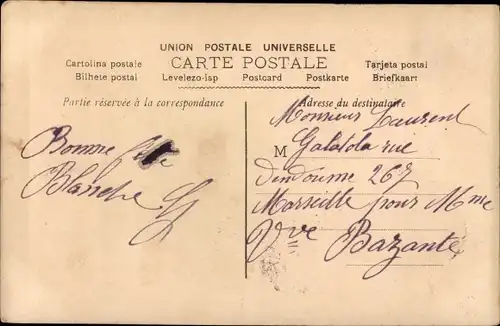 UNION POSTALE UNIVERSELLE
CARTE POSTALE
Cartolina postale
Tarjeta postal
Bilhete postal
Levelezo-lap
Postcard
Postkarte
Briefkaart
Partie réservée à la correspondance
Bonne fête
Blanche G
Adresse du destinataire
Monsieur Laurent
M Galatola rue
Dendoume 267
Marseille pour Mme
Vve Bazante